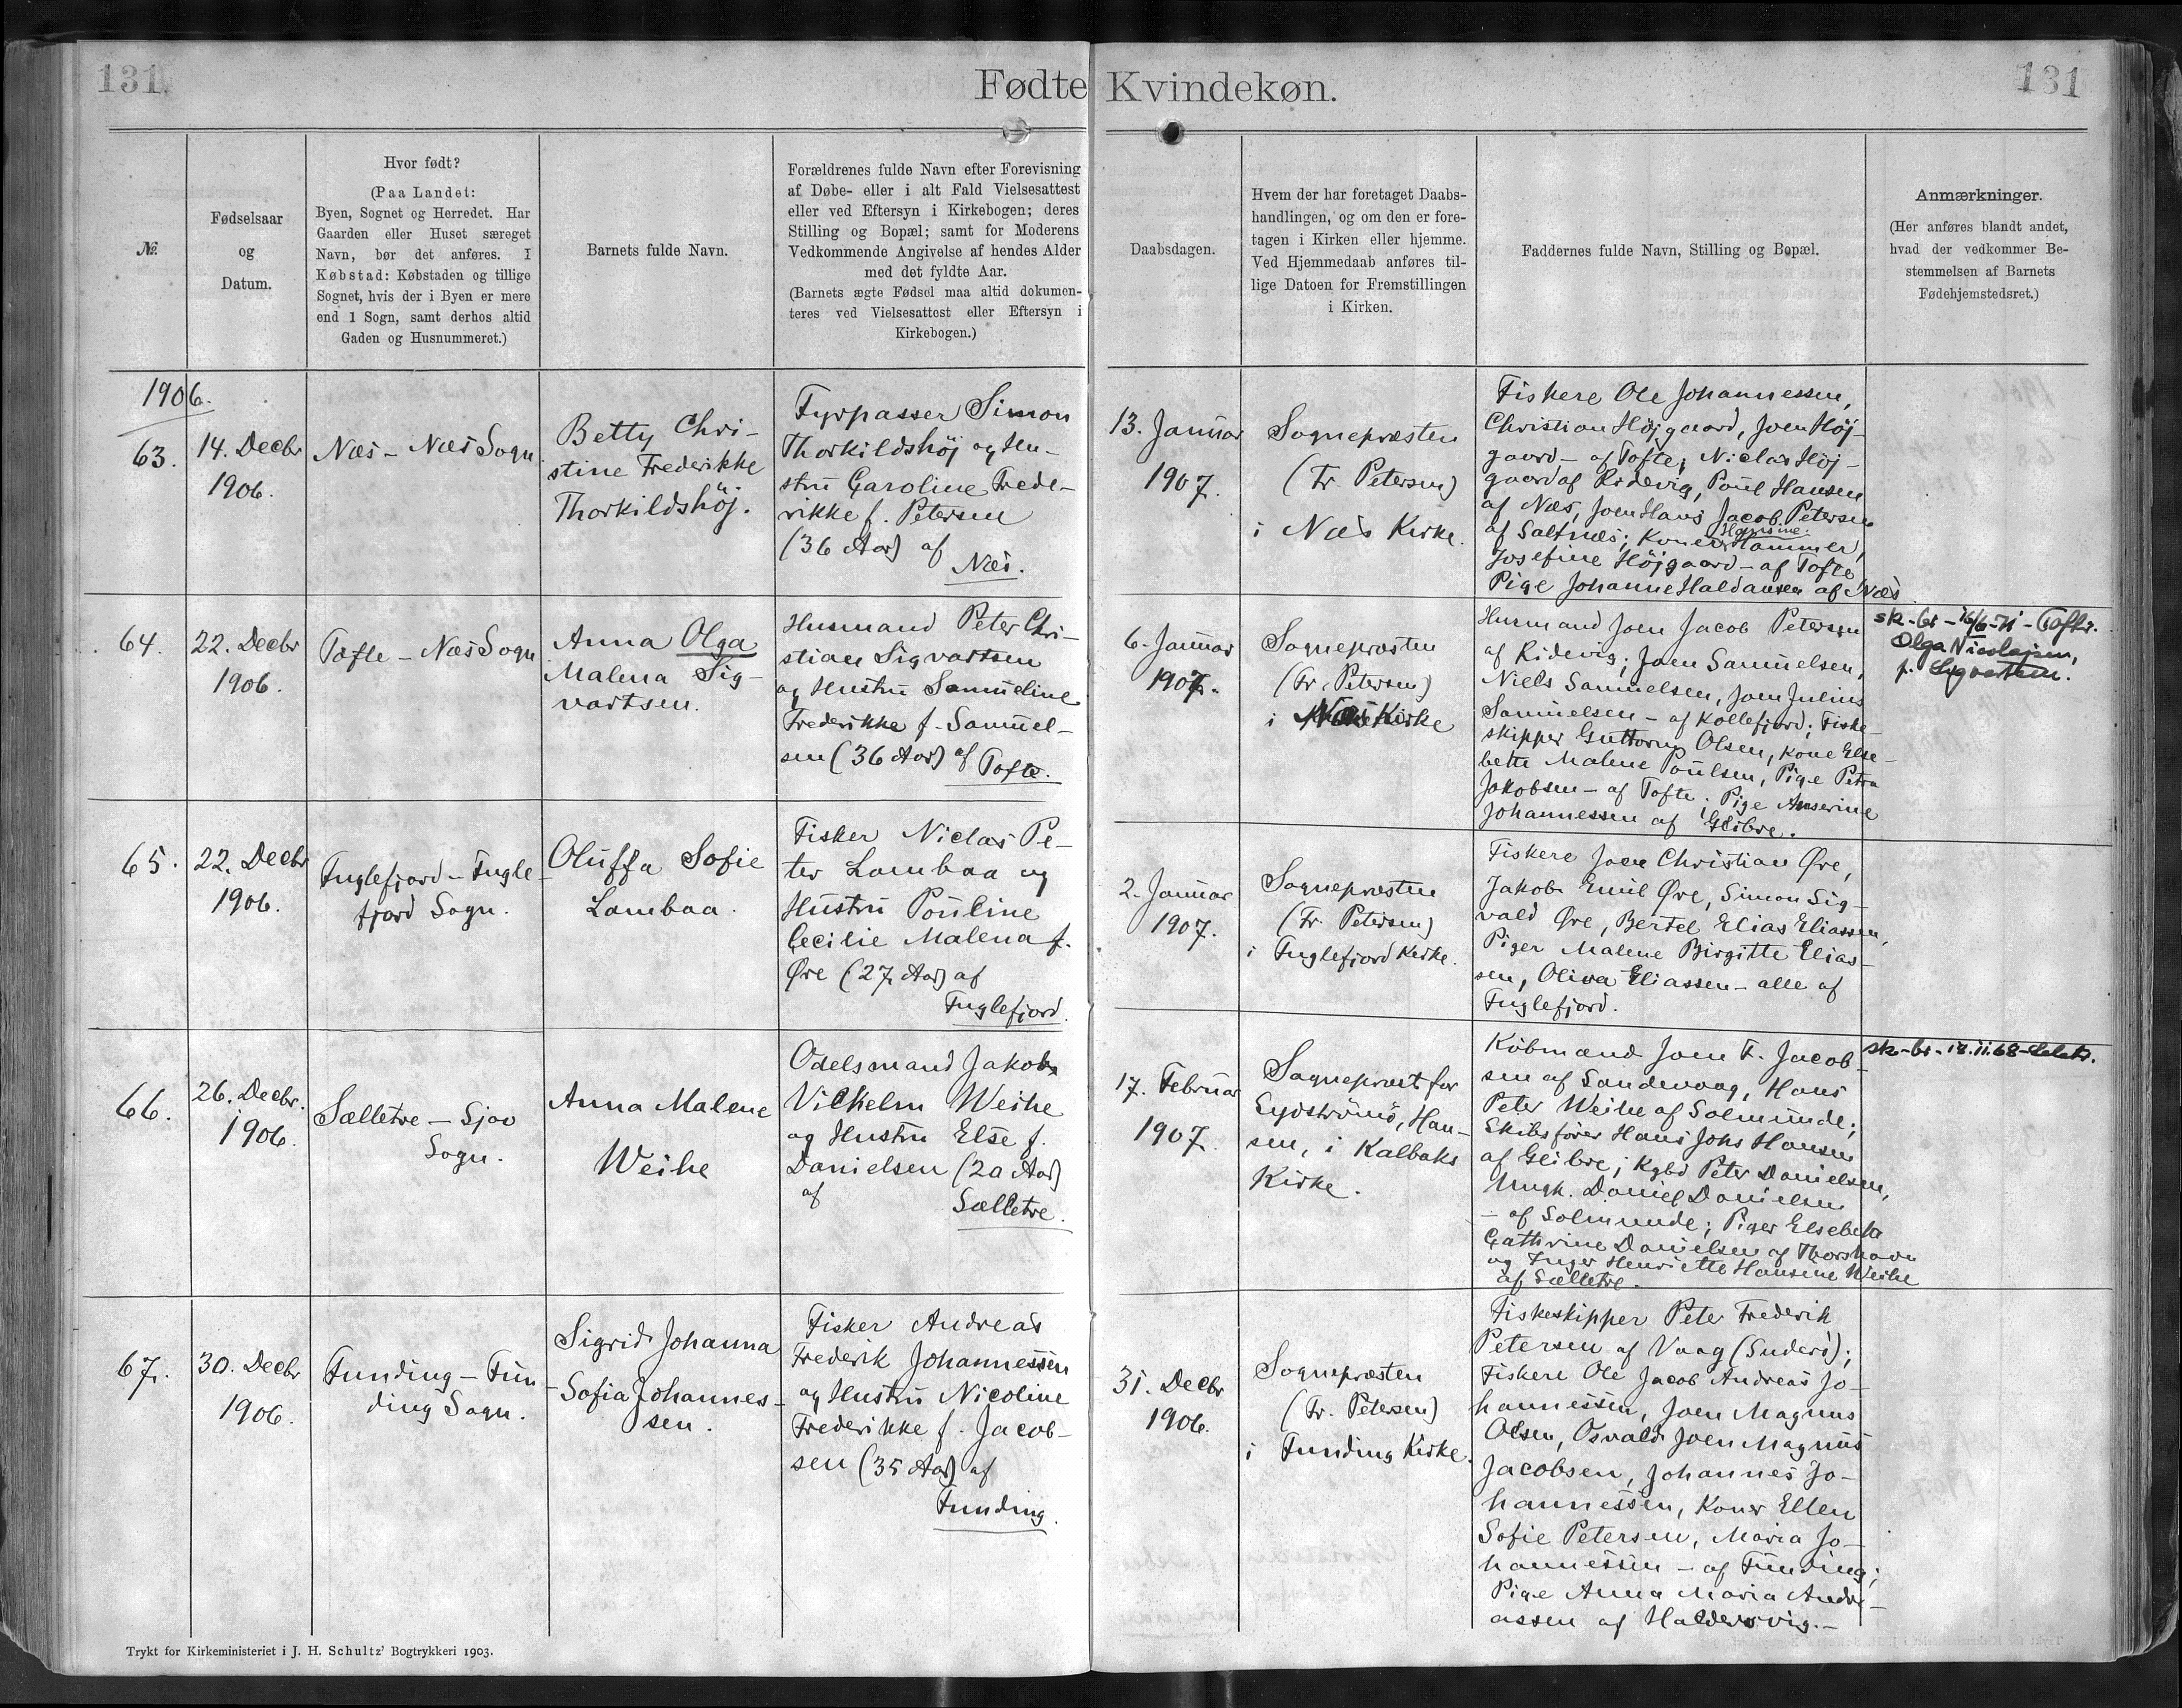 131.
Fødte Kvindekøn.
131
№
Fødselsaar
og
Datum.
Hvor født?
(Paa Landet:
Byen, Sognet og Herredet. Har
Gaarden eller Huset særeget
Navn, bør det anføres. I
Købstad: Købstaden og tillige
Sognet, hvis der i Byen er mere
end 1 Sogn, samt derhos altid
Gaden og Husnummeret.)
Barnets fulde Navn.
Forældrenes fulde Navn efter Forevisning
af Døbe- eller i alt Fald Vielsesattest
eller ved Eftersyn i Kirkebogen; deres
Stilling og Bopæl; samt for Moderens
Vedkommende Angivelse af hendes Alder
med det fyldte Aar.
(Barnets ægte Fødsel maa altid dokumen-
teres ved Vielsesattest eller Eftersyn i
Kirkebogen.)
Daabsdagen.
Hvem der har foretaget Daabs-
handlingen, og om den er fore-
tagen i Kirken eller hjemme.
Ved Hjemmedaab anføres til-
lige Datoen for Fremstillingen
i Kirken.
Faddernes fulde Navn, Stilling og Bopæl.
Anmærkninger.
(Her anføres blandt andet,
hvad der vedkommer Be-
stemmelsen af Barnets
Fødehjemstedsret.)
1906.
63.
14. Decbr
1906.
Næs – Næs Sogn
Betty Chri-
stine Frederikke
Thorkildshöj.
Fyrpasser Simon
Thorkildshöj og Hu-
stru Caroline Frede-
rikke f. Petersen
(36 Aar) af
Næs.
13. Januar
1907.
Sognepræsten
(Fr. Petersen)
i Næs Kirke.
Fiskere Ole Johannessen,
Christian Höjgaard, Joen Höj-
gaard – af Tofte; Niclas Höj-
gaard af Ridevig, Poul Hansen
af Næs, Joen Hans Jacob Petersen
af Saltnæs; Koner Hansine Hammer,
Josefine Höjgaard – af Tofte
Pige Johanne Haldansen af Næs
64.
22. Decbr
1906.
Tofte – Næs Sogn
Anna Olga
Malena Sig-
vartsen.
Husmand Peter Chri-
stian Sigvartsen
og Hustru Samueline
Frederikke f. Samuel-
sen (36 Aar) af Tofte.
6. Januar
1907.
Sognepræsten
(Fr. Petersen)
i Næs Kirke
Husmand Joen Jacob Petersen
af Ridevig; Joen Samuelsen,
Niels Samuelsen, Joen Julius
Samuelsen – af Kollefjord; Fiske-
skipper Guttorm Olsen, Kone Else-
beth Malene Poulsen, Pige Petra
Jakobsen – af Tofte; Pige Anserine
Johannessen af Glibre.
sk-br- 16/6-71 - Toftir.
Olga Nicolajsen,
f. Sigvartsen.
65.
22. Decbr
1906.
Fuglefjord – Fugle-
fjord Sogn.
Oluffa Sofie
Lambaa.
Fisker Niclas Pe-
ter Lambaa og
Hustru Pouline
Cecilie Malena f.
Øre (27 Aar) af
Fuglefjord.
2. Januar
1907.
Sognepræsten
(Fr. Petersen)
i Fuglefjord Kirke.
Fiskere Joen Christian Øre,
Jakob Emil Øre, Simon Sig-
vald Øre, Bertel Elias Eliassen,
Piger Malene Birgitte Elias-
sen, Oliva Eliassen – alle af
Fuglefjord.
66.
26. Decbr.
1906.
Sælletre – Sjov
Sogn.
Anna Malene
Weihe
Odelsmand Jakob
Vilhelm Weihe
og Hustru Else f.
Danielsen (20 Aar)
af
Sælletre.
17. Februar
1907
Sognepræst for
Sydströmö, Han-
sen, i Kalbaks
Kirke.
Köbmand Joen F. Jacob-
sen af Sandevaag, Hans
Peter Weihe af Solmunde;
Skibsfører Hans Johs Hansen
af Glibre; Kgbd Peter Danielsen,
Ungk. Daniel Danielsen
– af Solmunde; Piger Elsebeth
Cathrine Danielsen af Thorshavn
og Inger Henriette Hansine Weihe
af Sælletre.
sk-br- 18.11.68-
67.
30. Decbr
1906.
Funding – Fun-
ding Sogn.
Sigrid Johanna
Sofia Johannes-
sen.
Fisker Andreas
Frederik Johannessen
og Hustru Nicoline
Frederikke f. Jacob-
sen (35 Aar) af
Funding.
31. Decbr
1906.
Sognepræsten
(Fr. Petersen)
i Funding Kirke.
Fiskeskipper Peter Frederik
Petersen af Vaag (Suderö);
Fiskere Ole Jacob Andreas Jo-
hannessen, Joen Magnus
Olsen, Osvald Joen Magnus
Jacobsen, Johannes Jo-
hannessen, Koner Ellen
Sofie Petersen, Maria Jo-
hannessen – af Funding;
Pige Anna Maria Andre-
assen af Haldersvig.–
Trykt for Kirkeministeriet i J. H. Schultz' Bogtrykkeri 1903.